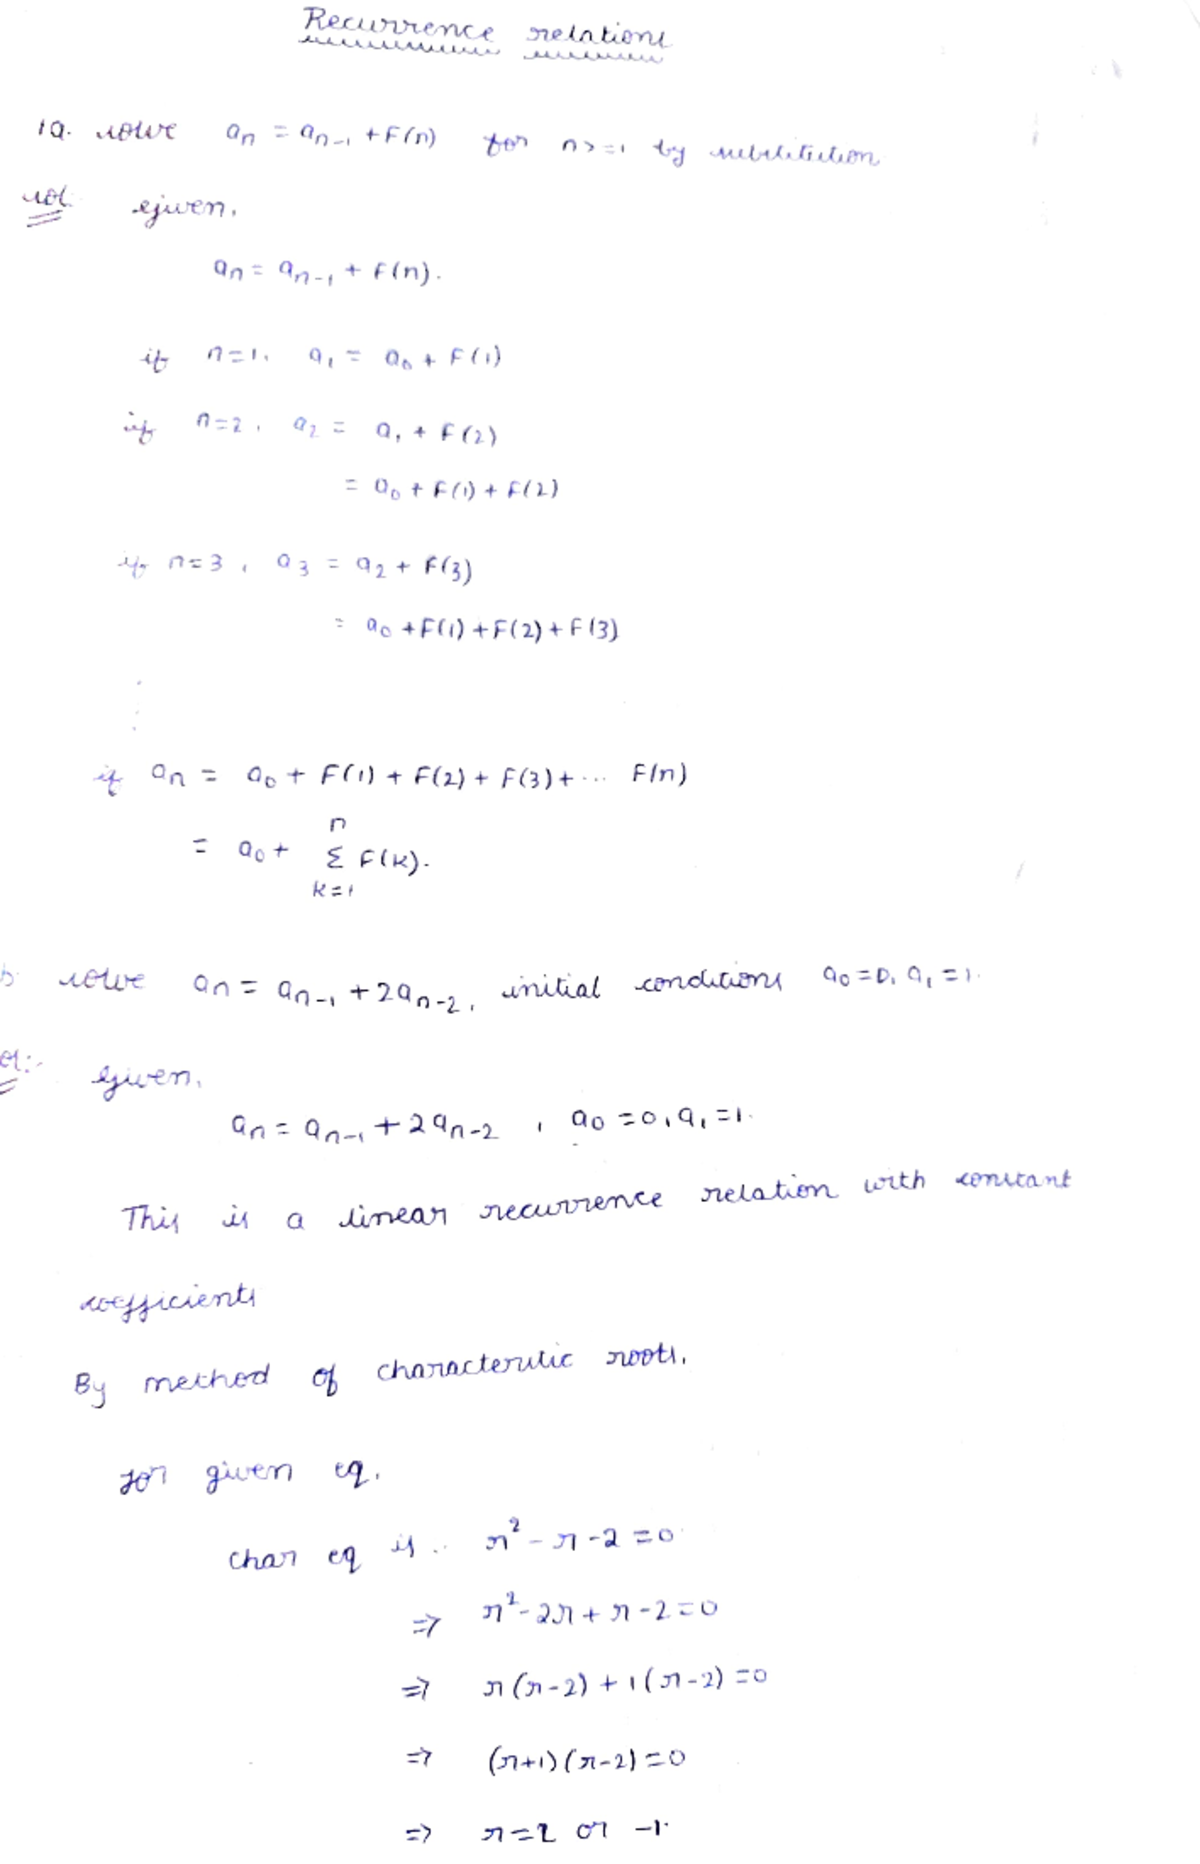 Recurrence relations
1a. solve aₙ = aₙ₋₁ + F(n) for n>=1 by substitution
sol. Given,
aₙ = aₙ₋₁ + F(n).
if n=1, a₁ = a₀ + F(1)
if n=2, a₂ = a₁ + F(2)
= a₀ + F(1) + F(2)
if n=3, a₃ = a₂ + F(3)
= a₀ + F(1) + F(2) + F(3)
⋮
if aₙ = a₀ + F(1) + F(2) + F(3) + ... F(n)
n
= a₀ + Σ F(k).
k=1
b. solve aₙ = aₙ₋₁ + 2aₙ₋₂, initial conditions a₀=0, a₁=1.
ol:- Given,
aₙ = aₙ₋₁ + 2aₙ₋₂, a₀=0, a₁=1.
This is a linear recurrence relation with constant
coefficients
By method of characteristic roots,
for given eq,
char eq is.. r² - r - 2 = 0
=> r² - 2r + r - 2 = 0
=> r(r-2) + 1(r-2) = 0
=> (r+1)(r-2) = 0
=> r=2 or -1.